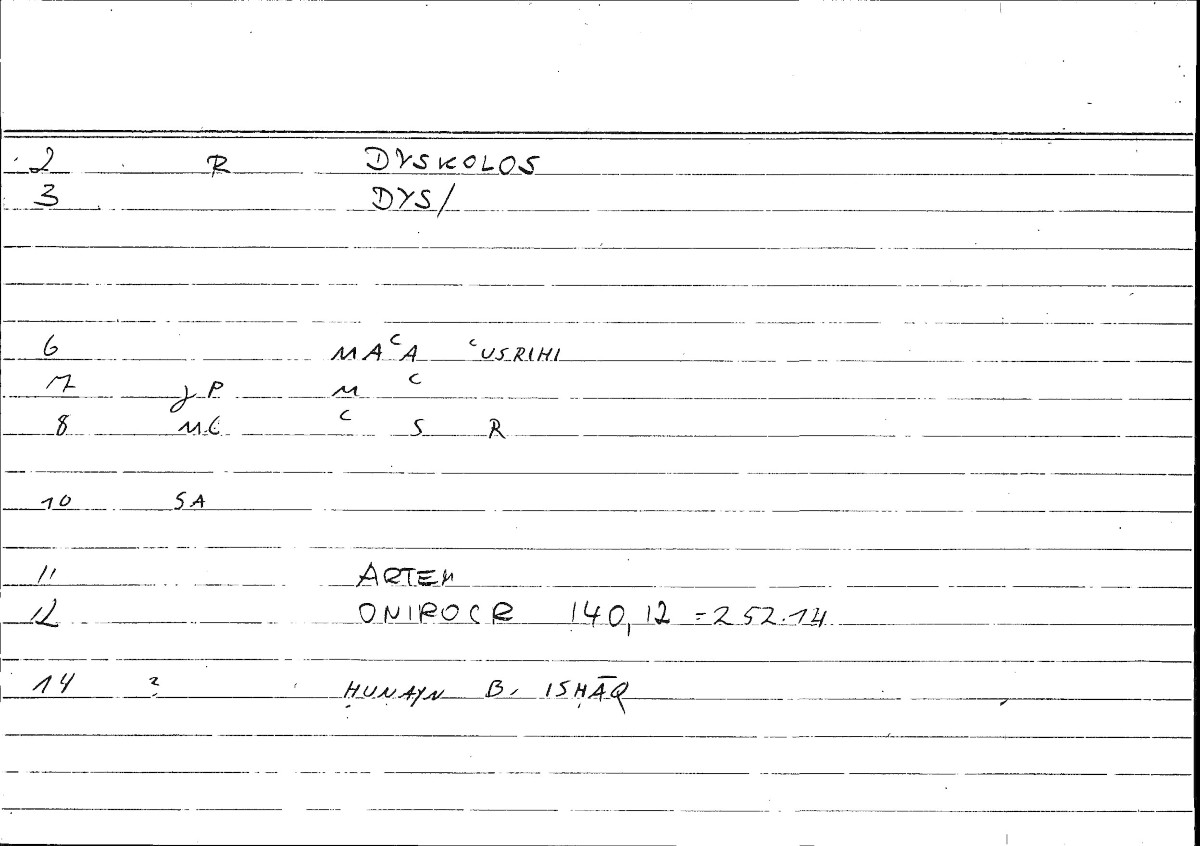 2 R DYSKOLOS
3 DYS/
6 MAᶜA ᶜUSRIHI
7 JP M ᶜ
8 MC ᶜ S R
10 SA
11 ARTEM
12 ONIROCR 140,12 =252.14
14 ? ḤUNAYN B. ISḤĀQ